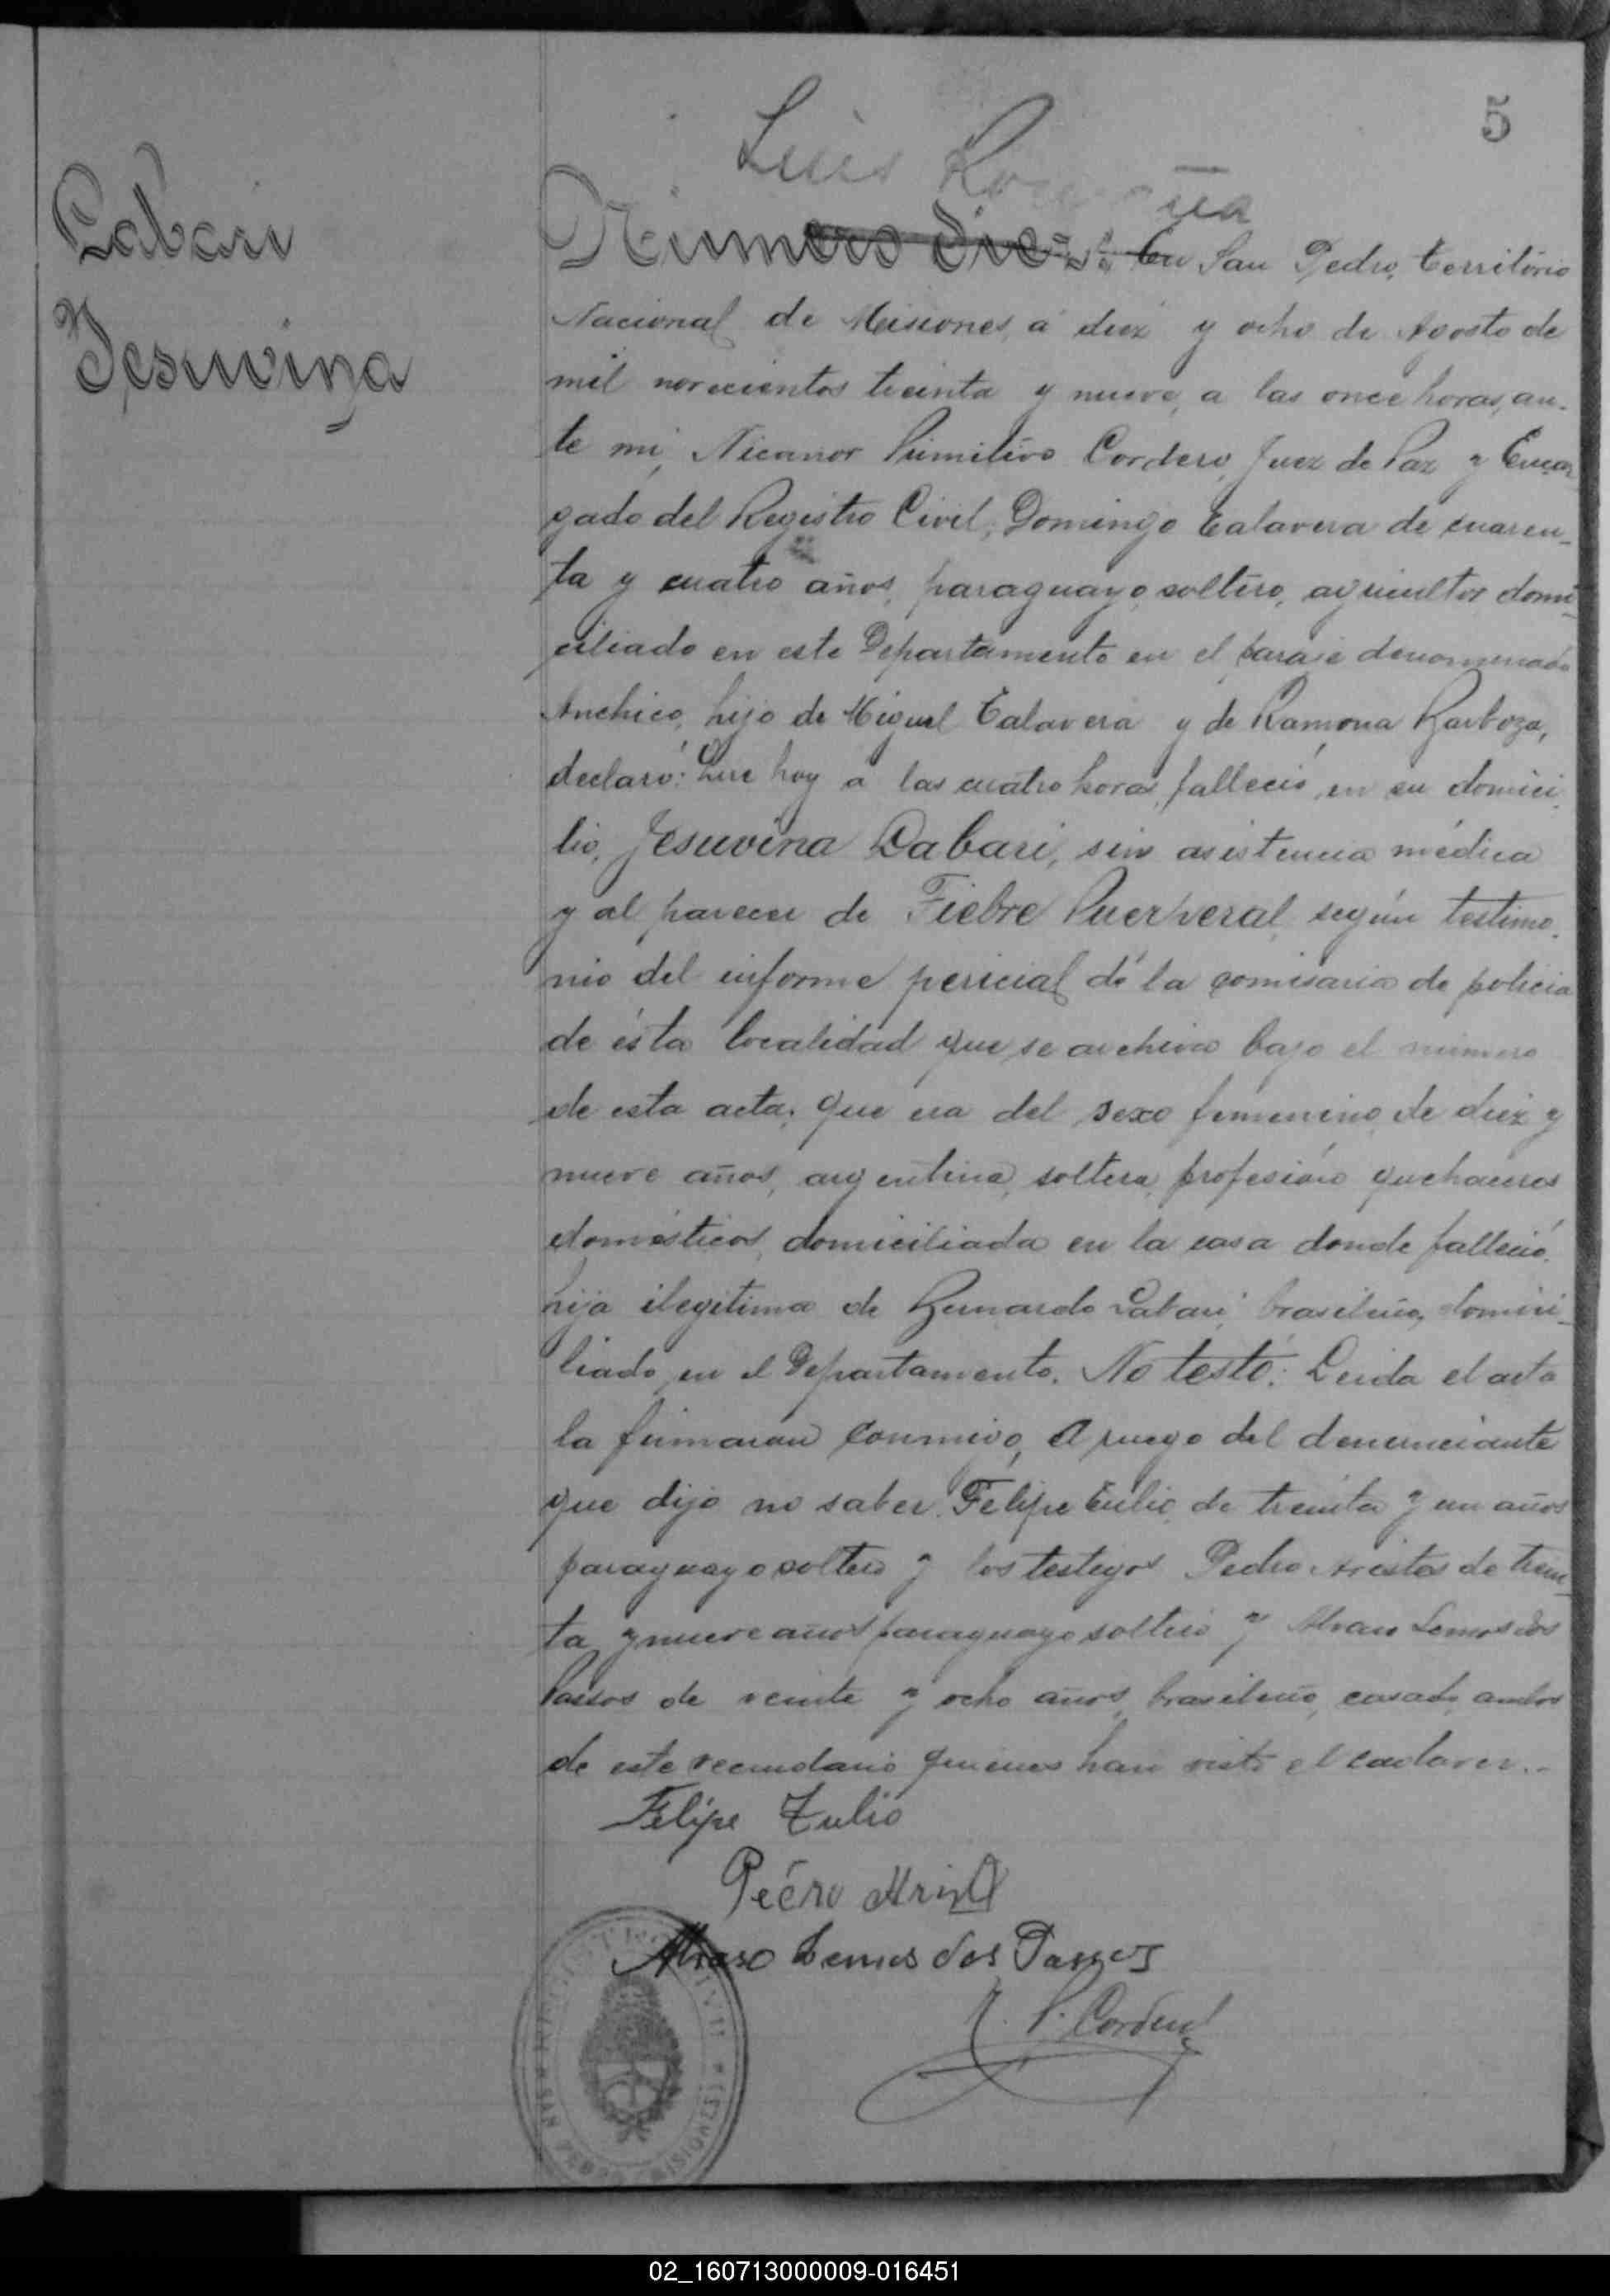 5
Luis
Labari
Jesuvina
Número diez: En San Pedro, territorio
Nacional de Misiones, á diez y ocho de Agosto de
mil novecientos treinta y nueve, a las once horas, an-
te mi, Nicanor Primitivo Cordero, Juez de Paz y Encar
gado del Registro Civil, Domingo Talavera de cuaren-
ta y cuatro años, paraguayo, soltero, agricultor domi-
ciliado en este Departamento en el paraje denominado
Anchico, hijo de Miguel Talavera y de Ramona Barboza,
declaró: Que hoy á las cuatro horas, falleció, en su domici-
lio, Jesuvina Labari, sin asistencia médica
y al parecer de Fiebre Puerperal, según testimo-
nio del informe pericial de la comisaria de policia
de ésta localidad que se archiva bajo el número
de esta acta; que era del sexo femenino, de diez y
nueve años, argentina, soltera, profesión quehaceres
domésticos, domiciliada en la casa donde falleció.
hija ilegitima de Bernardo Labari, brasileño, domici-
liado, en el Departamento. No testó: Leida el acta
la firmaron conmigo, a ruego del denunciante
que dijo no saber, Felipe Tulio, de treinta y un años
paraguayo soltero y los testigos Pedro de trein-
ta y nueve años paraguayo soltero y Alvaro Lemos dos
Passos de veinte y ocho años, brasileño, casado, ambos
de este vecindario quienes han visto el cadaver.-
Felipe Tulio
Alvaro Lemos dos Passos
N. P. Cordero
REGISTRO CIVIL
SAN PEDRO MISIONES
02_160713000009-016451